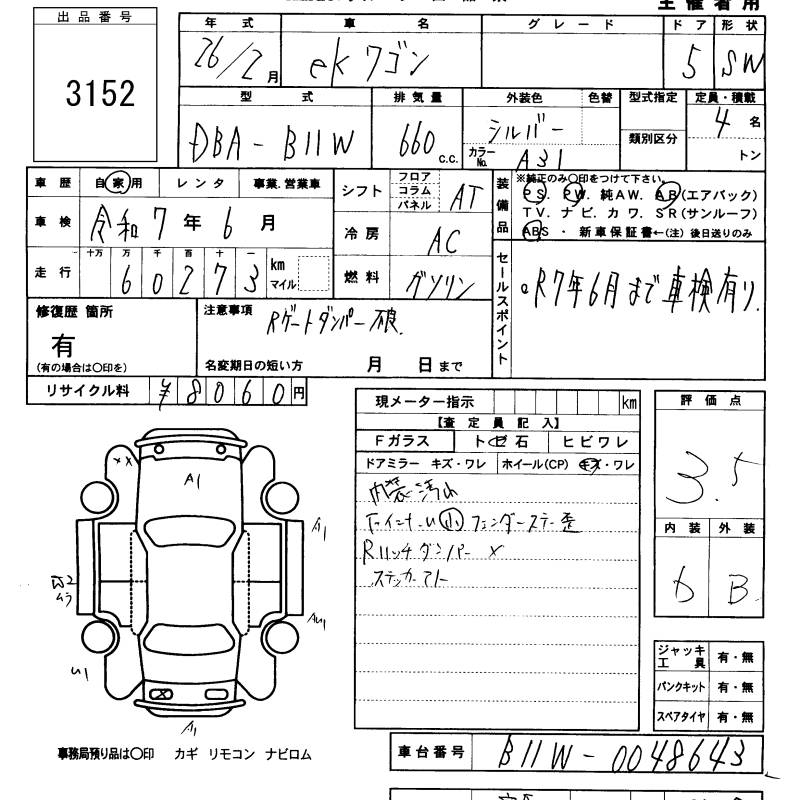 主催者用
出品番号
3152
年式 車名 グレード ドア 形状
26/2月 ekワゴン 5 SW
型式 排気量 外装色 色替 型式指定 定員・積載
DBA-B11W 660 c.c. シルバー 類別区分 4名
カラーNo. A31 トン
車歴 自家用 レンタ 事業.営業車
シフト フロア コラム パネル AT
装備品 ※純正のみ〇印をつけて下さい。
PS. PW. 純AW. AB(エアバック)
TV. ナビ. カワ. SR(サンルーフ)
ABS ・ 新車保証書←(注) 後日送りのみ
車検 令和7年6月
冷房 AC
走行 十万 万 千 百 十 一
60273 km マイル
燃料 ガソリン
セールスポイント
。R7年6月まで車検有り.
修復歴 箇所
有
(有の場合は〇印を)
注意事項
Rゲートダンパー不良.
名変期日の短い方 月 日まで
リサイクル料 ¥8060円
現メーター指示 km
【査定員記入】
Fガラス トビ石 ヒビワレ
ドアミラー キズ・ワレ ホイール(CP) キズ・ワレ
内装汚れ
フェンダーステー歪
ダンパー ×
ステッカーアト
評価点
3.5
内装 外装
B
ジャッキ 工具 有・無
パンクキット 有・無
スペアタイヤ 有・無
×× A1
A1
ムラ
U1
×
A1
事務局預り品は〇印 カギ リモコン ナビロム
車台番号 B11W-0048643